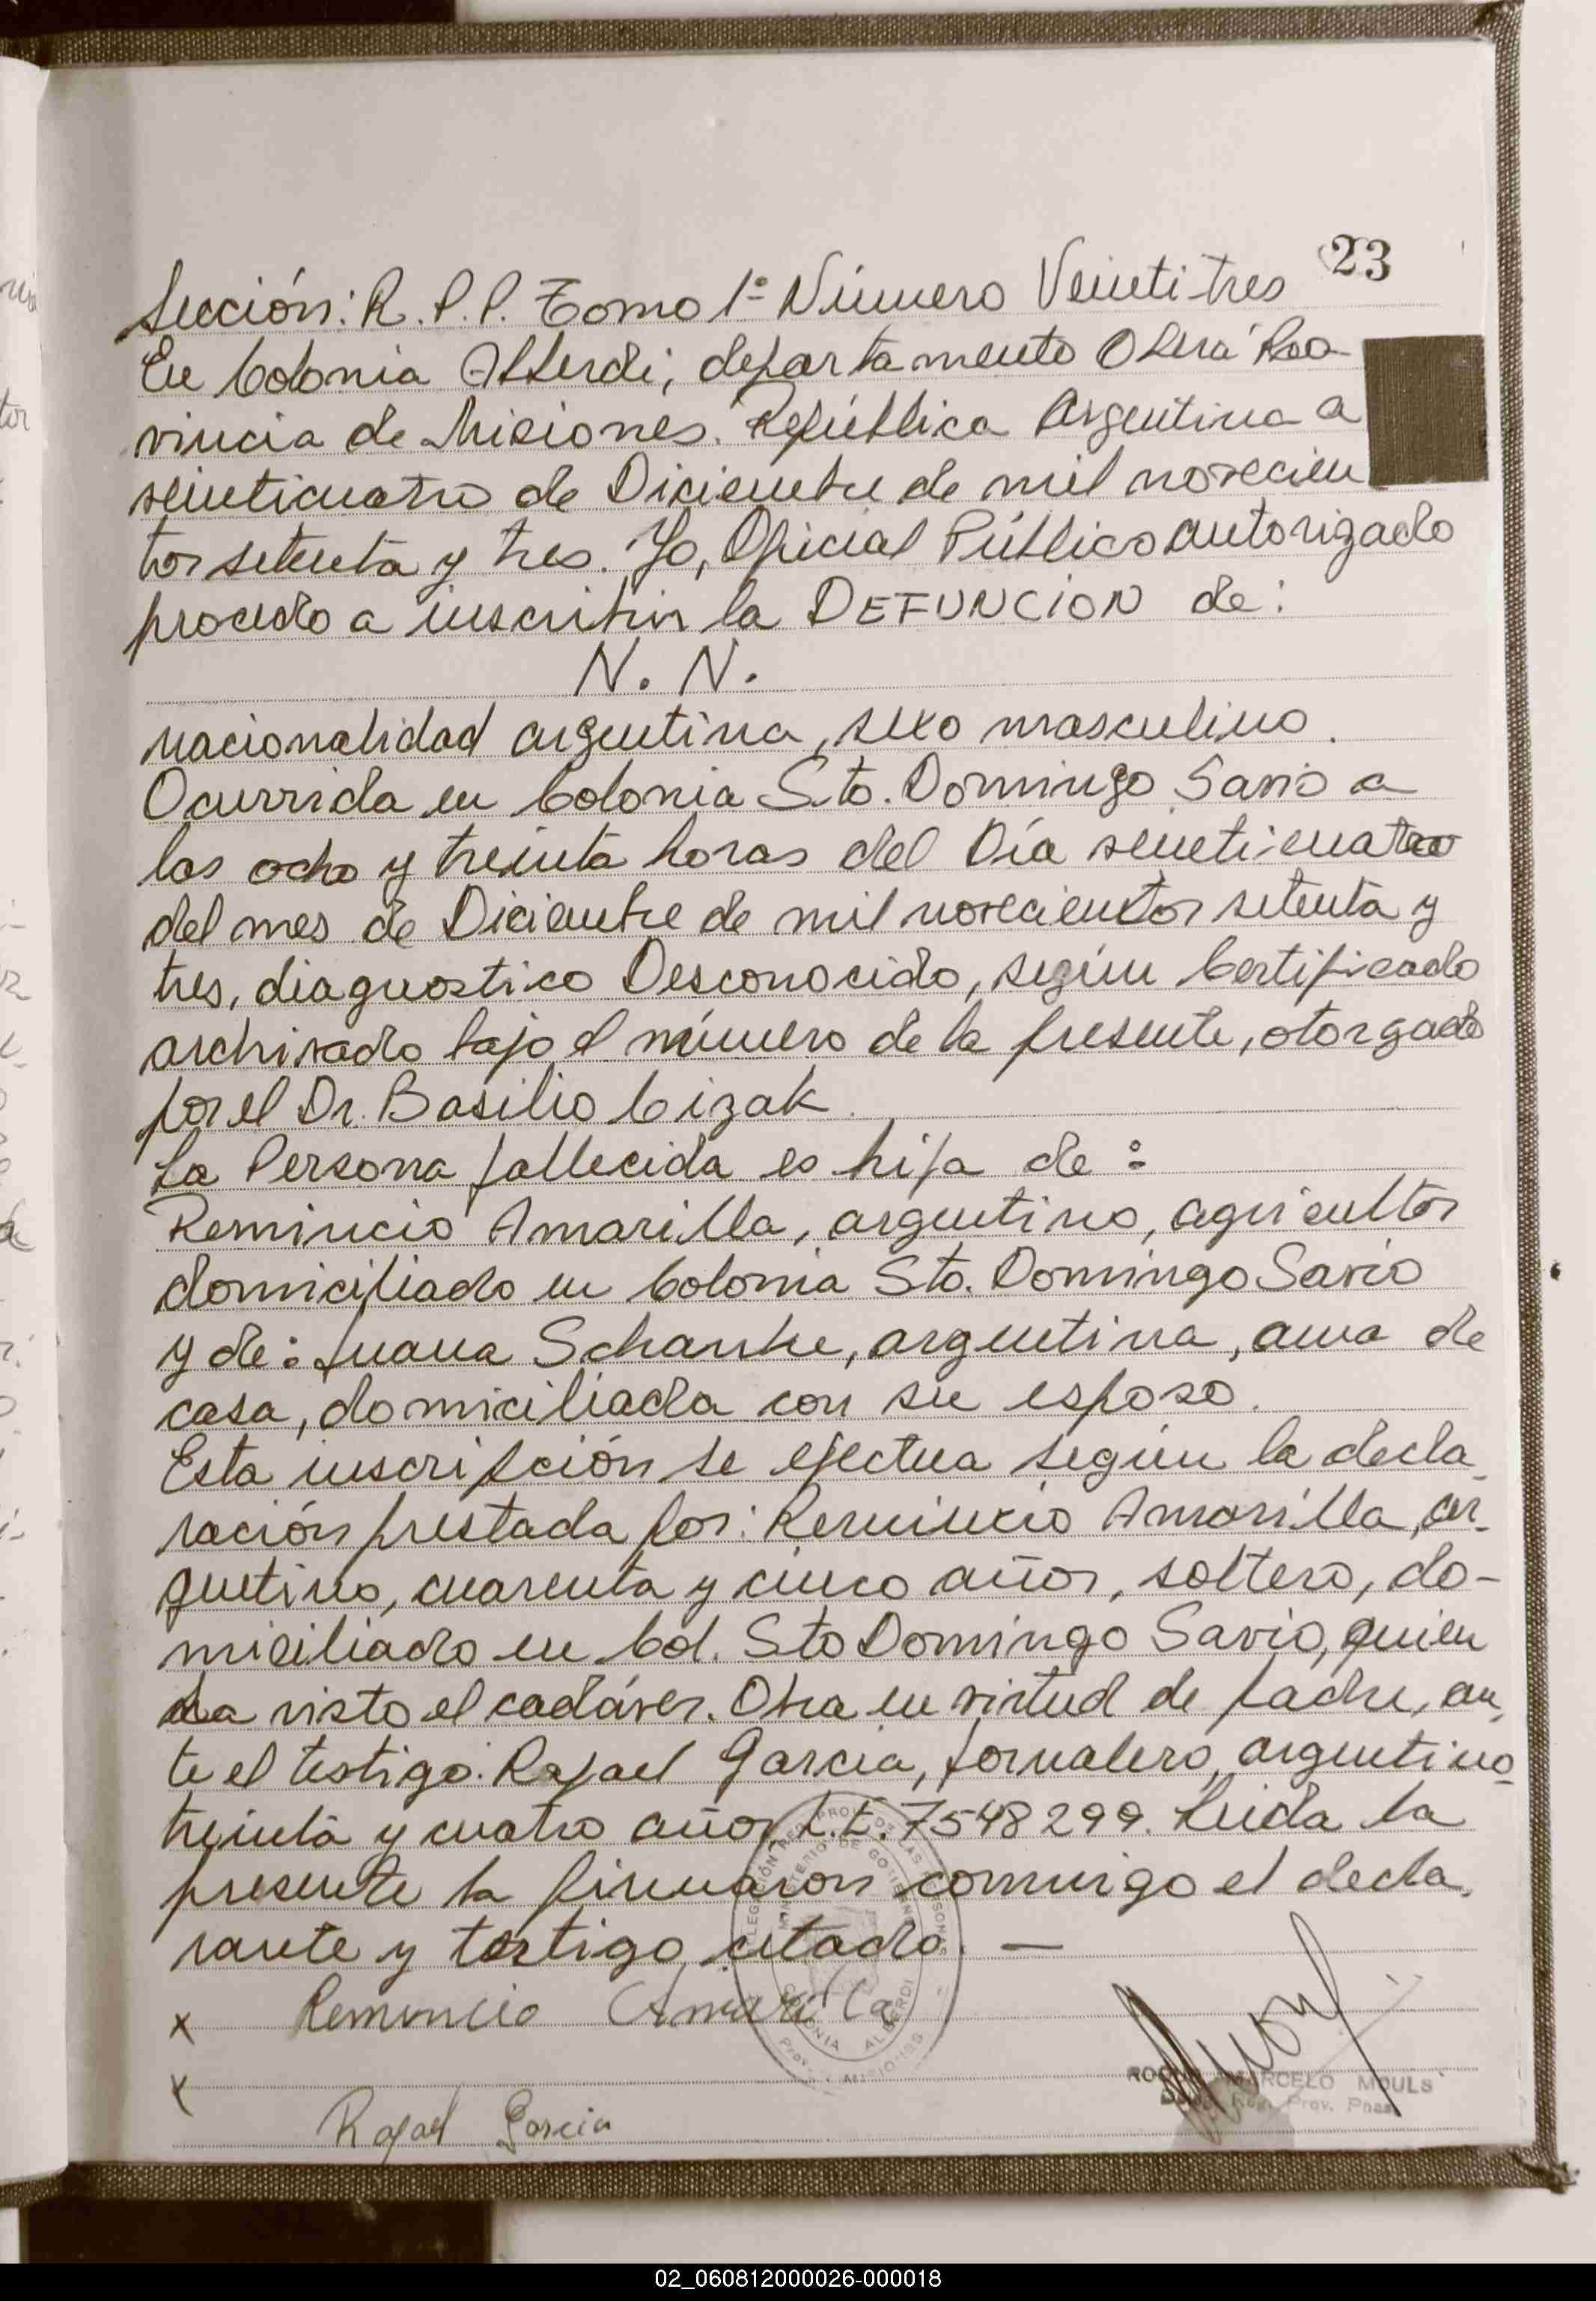 23
Sección: R.P.P. Tomo 1º Número Veintitres
En Colonia Alberdi, departamento Oberá Pro-
vincia de Misiones. República Argentina a
veinticuatro de Diciembre de mil novecien
tos setenta y tres. Yo, Oficial Público autorizado
procedo a inscribir la DEFUNCION de:
N. N.
nacionalidad argentina, sexo masculino.
Ocurrida en Colonia Sto. Domingo Savio a
las ocho y treinta horas del Día veinticuatro
del mes de Diciembre de mil novecientos setenta y
tres, diagnostico Desconocido, según Certificado
archivado bajo el número de la presente, otorgado
por el Dr. Basilio Cizak.
La Persona fallecida es hija de:
Remincio Amarilla, argentino, agricultor
domiciliado en Colonia Sto. Domingo Savio
y de: Juana Schanke, argentina, ama de
casa, domiciliada con su esposo.
Esta inscripción se efectua según la decla
ración prestada por: Remincio Amarilla, ar-
gentino, cuarenta y cinco años, soltero, do-
miciliado en Col. Sto Domingo Savio, quien
ha visto el cadáver. Obra en virtud de padre, an
te el testigo: Rafael Garcia, jornalero, argentino
treinta y cuatro años, L.E. 7548299. Leida la
presente la firmaron conmigo el decla
rante y testigo citado. —
x Remincio Amarilla
x
Rafael Garcia
MINISTERIO DE GOBIERNO
COLONIA ALBERDI
Prov. MISIONES
ROQUE MARCELO MOULS
Reg. Prov. Pnas.
02_060812000026-000018